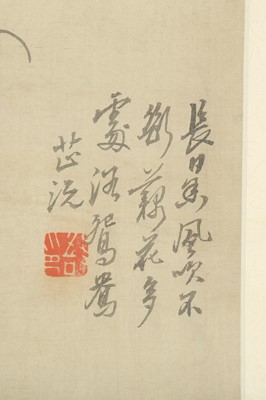 長日香風吹不
斷藕花多
處浴鴛鴦
芷沅